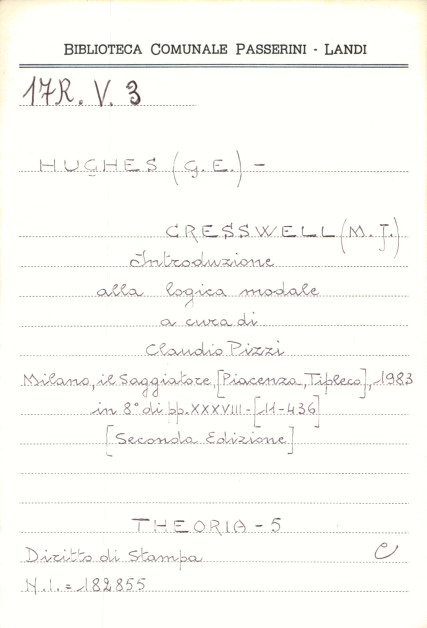 BIBLIOTECA COMUNALE PASSERINI - LANDI
17R. V. 3
HUGHES (G.E.) -
CRESSWELL (M.J.)
Introduzione
alla logica modale
a cura di
Claudio Pizzi
Milano, il Saggiatore, [Piacenza, Tipleco], 1983
in 8° di pp. XXXVIII - [11-436]
[Seconda Edizione]
THEORIA - 5
Diritto di Stampa C
N.I. = 182855